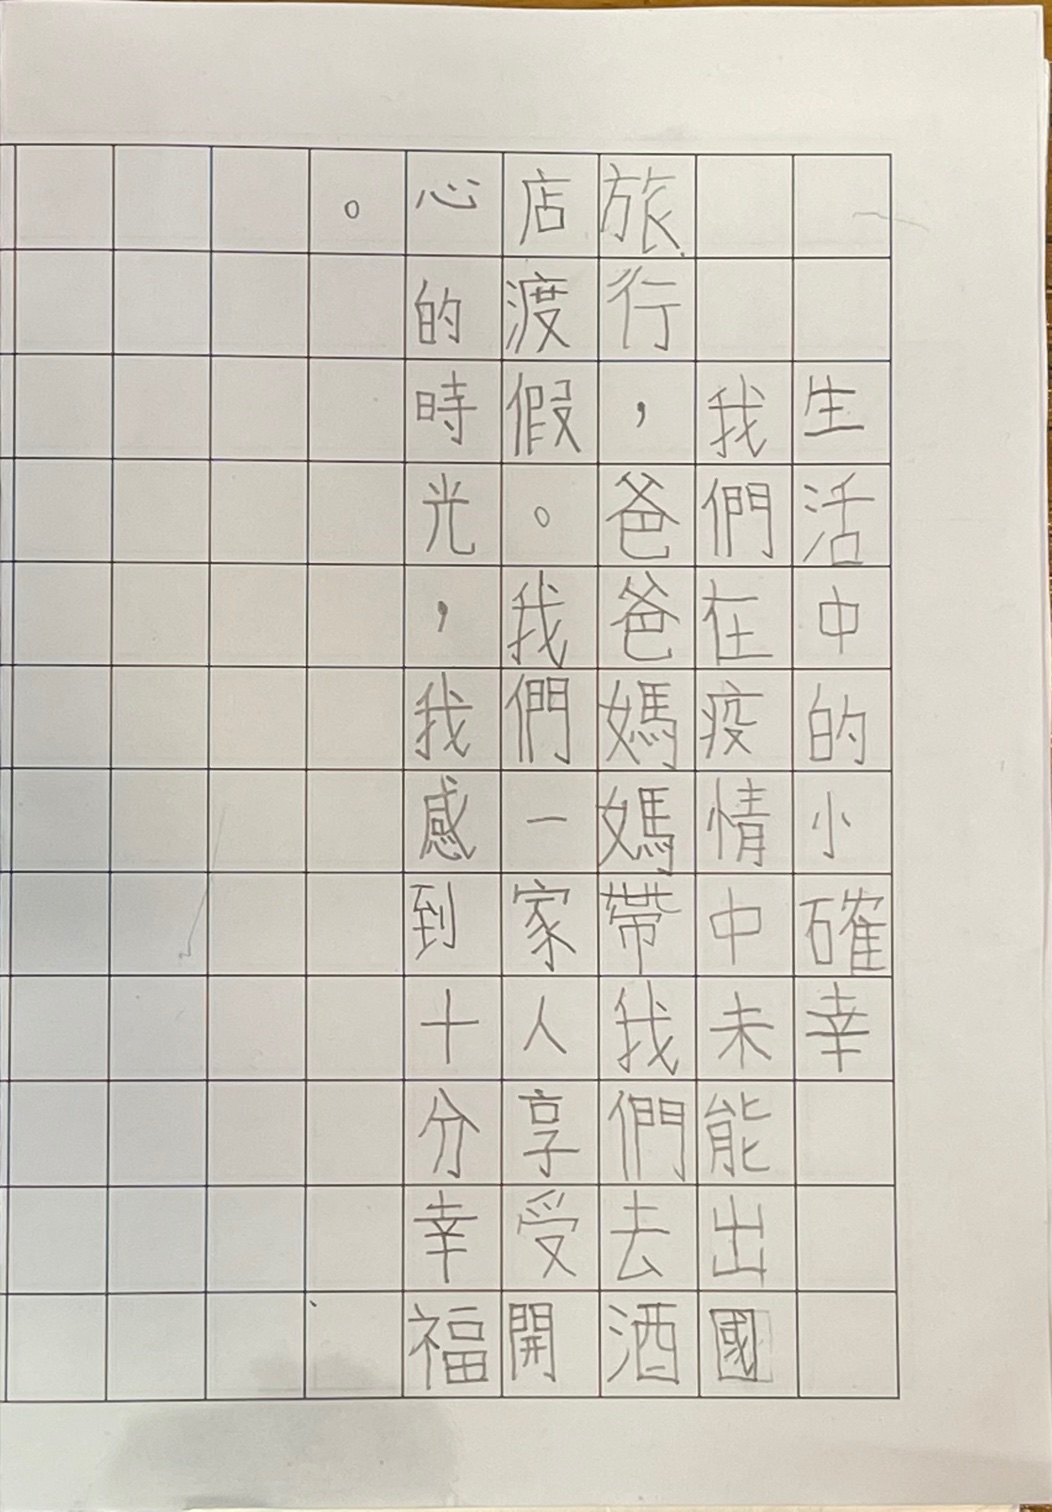 生活中的小確幸
我們在疫情中未能出國
旅行，爸爸媽媽帶我們去酒
店渡假。我們一家人享受開
心的時光，我感到十分幸福
。